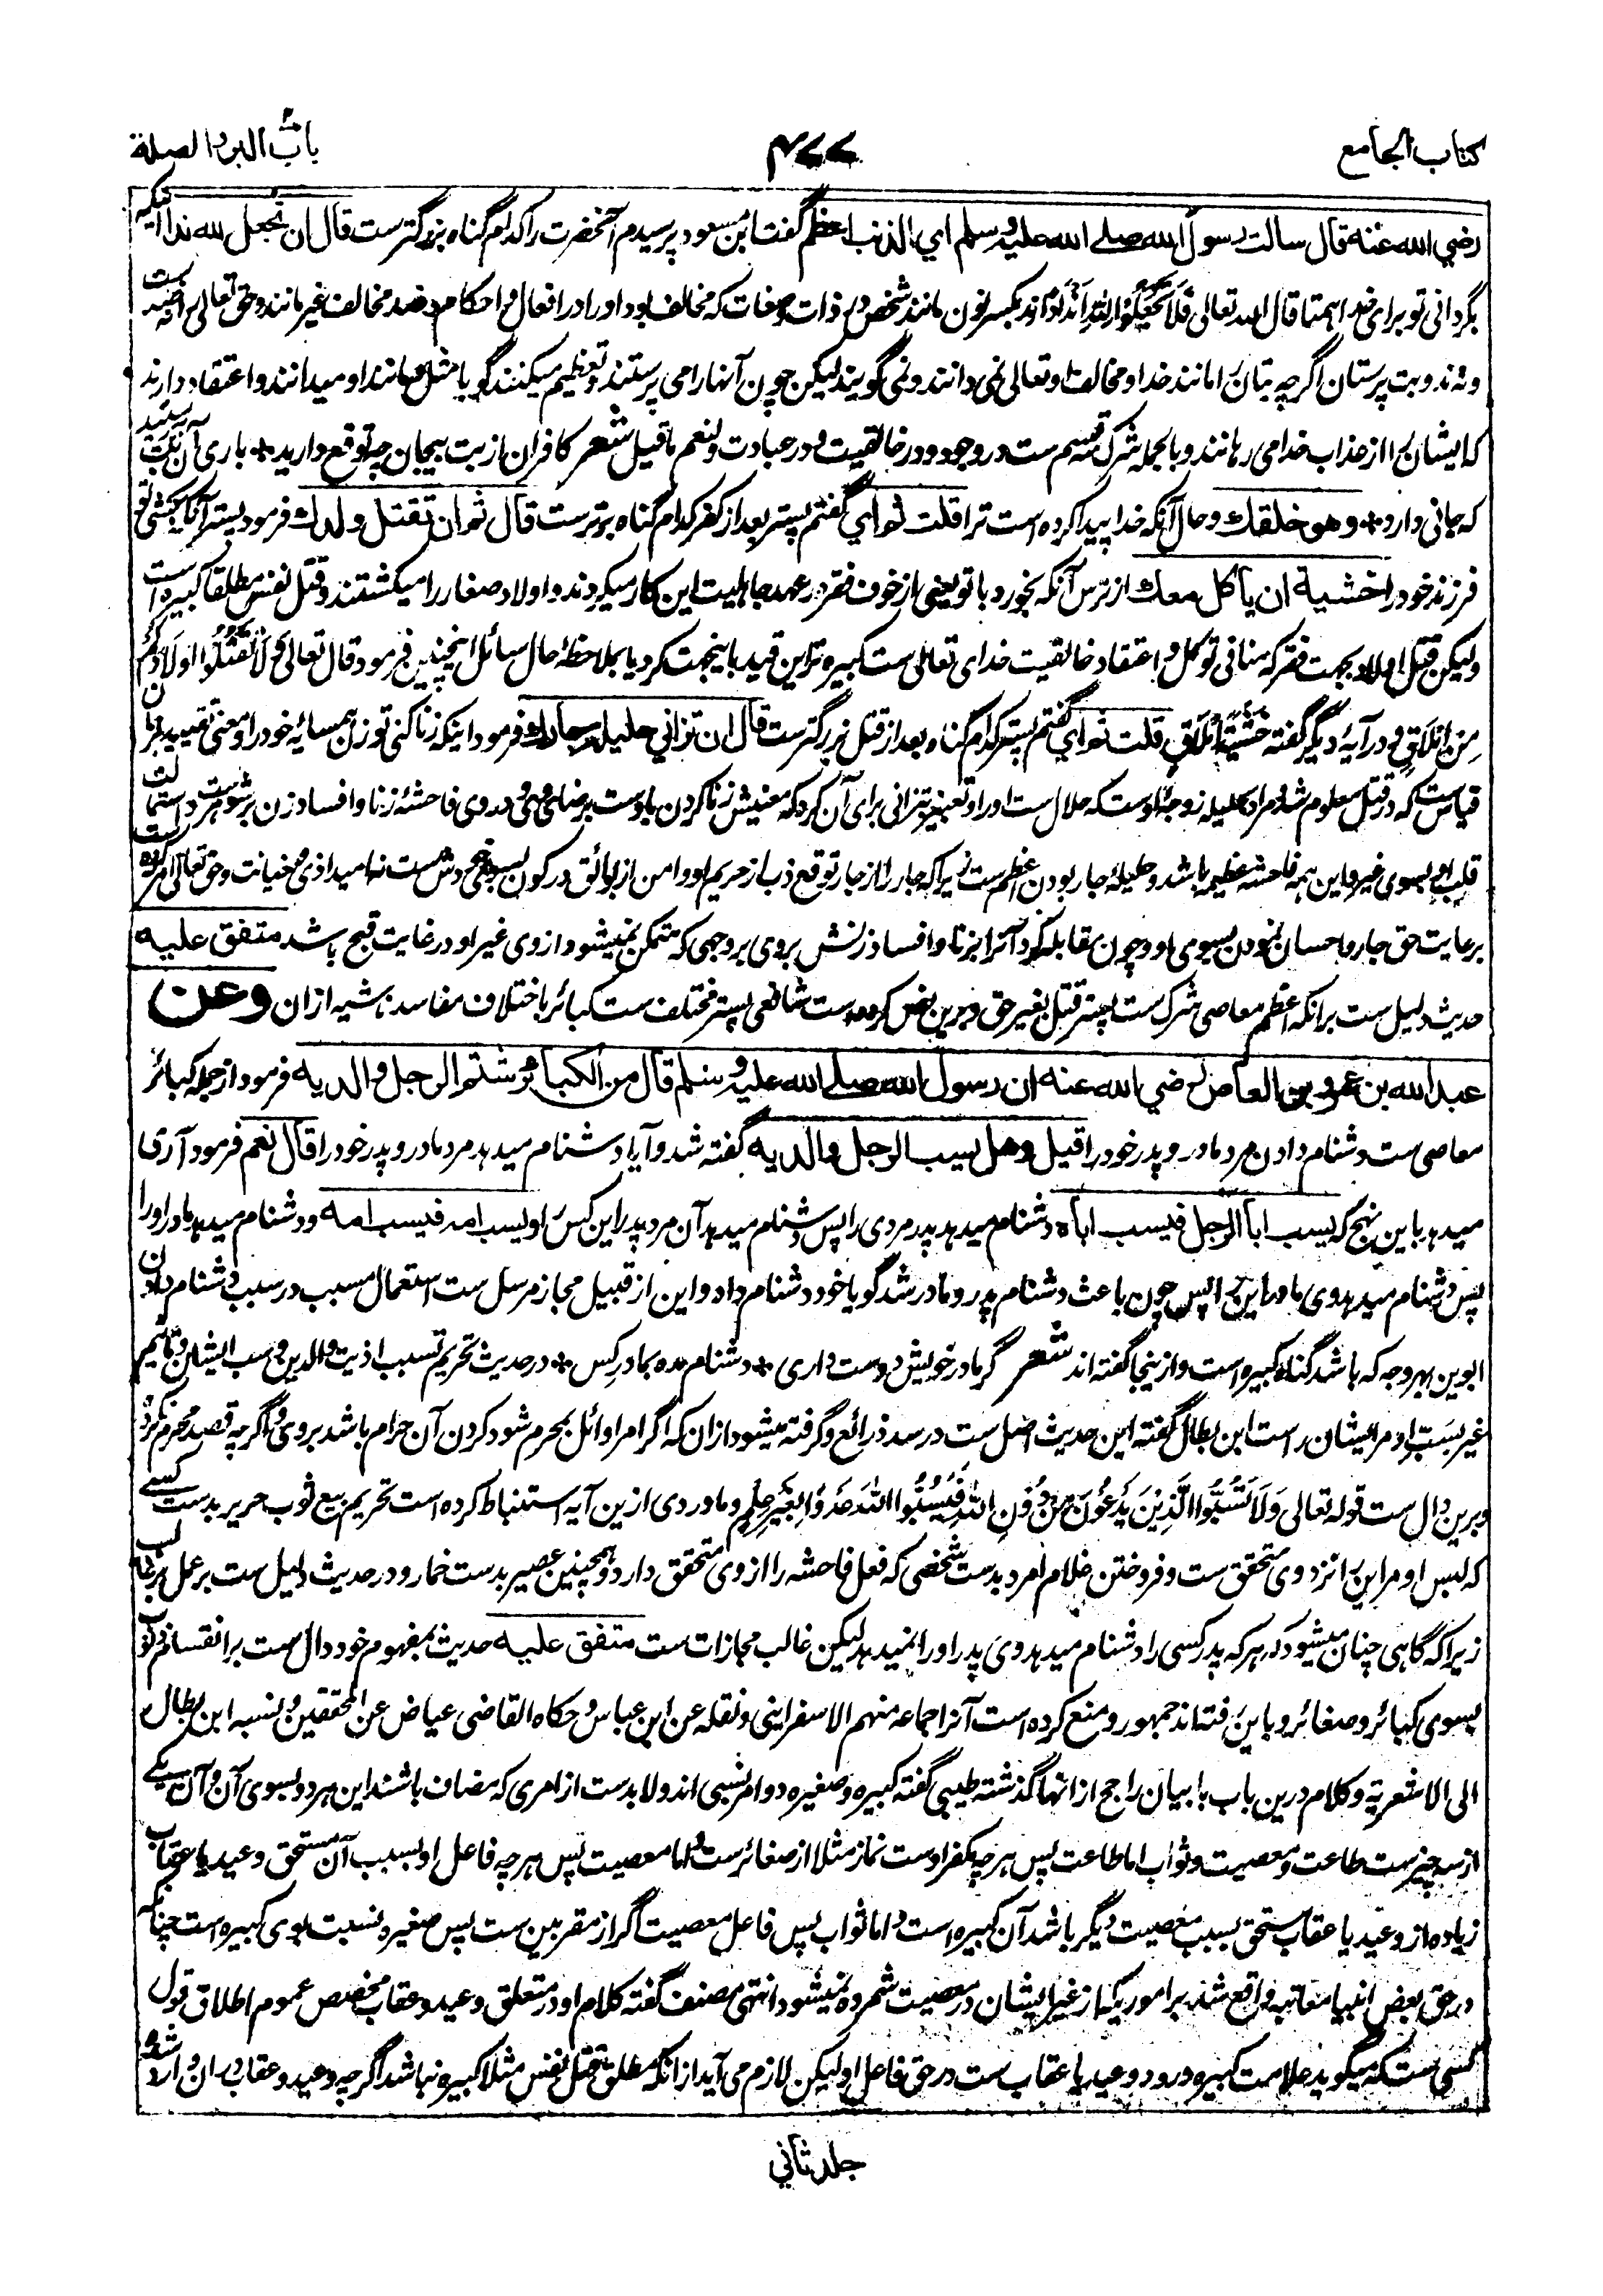 كتاب الجامع
۴۷۷
باب البر والصلة
رضي الله عنه قال سالت رسول الله صلے الله عليه وسلم اي الذنب اعظم گفت ابن مسعود پرسیدم آنحضرت را کدام گناه بزرگترست قال ان تجعل لله ندا اینکه
بگردانی تو برای خدا همتا قال الله تعالی فَلَا تَجْعَلُوا لِلّٰهِ اَنْدَادًا ند بکسر نون مانند شخص در ذات و صفات که مخالف بود او را در افعال و احکام و ضد مخالف غیر مانند و حق تعالی را نه ضد ست
و نه ند و بت پرستان اگرچه بتان را مانند خدا و مخالف او تعالی نمی دانند و نمی گویند لیکن چون آنها را می پرستند و تعظیم میکنند گویا مثل و مانند او میدانند و اعتقاد دارند
که ایشان را از عذاب خدا می رهانند و بالجمله شرک سه قسم ست در وجود و در خالقیت و در عبادت و لنعم ما قیل شعر کافران از بت بیجان چه توقع دارید * باری آن بت بپرستید
که جانی دارد * وهو خلقك و حال آنکه خدا پیدا کرده است ترا قلت ثم اي گفتم پستر بعد از کفر کدام گناه برترست قال ثم ان تقتل ولدك فرمود پستر آنکه بکشی تو
فرزند خود را خشية ان ياكل معك از ترس آنکه بخورد با تو یعنی از خوف فقر در عهد جاهلیت این کار میکردند و اولاد صغار را میکشتند و قتل نفس مطلقا کبیره است
ولیکن قتل اولاد بجهت فقر که منافی توکل و اعتقاد خالقیت خدای تعالی ست کبیره تر این قید باینجهت کرد یا بملاحظۀ حال سائل اینچنین فرمود قال تعالی وَلَا تَقْتُلُوا اَوْلَادَكُمْ
مِنْ اِمْلَاقٍ و در آیۀ دیگر گفته خَشْيَةَ اِمْلَاقٍ قلت ثم اي گفتم پستر کدام گناه بعد از قتل بزرگترست قال ان تزاني حليلة جارك فرمود اینکه زنا کنی تو زن همسایۀ خود را و معنی تقیید بران
قیاس ست که در قتل معلوم شد و مراد بحلیله زوجۀ اوست که حلال ست او را و تعبیر بتزانی برای آن کرد که معنیش زنا کردن با اوست برضای وی و در وی فاحشۀ زنا و افساد زن بر شوهر ست و استمالت
قلب او بسوی غیر و این همه فاحشۀ عظیمه باشد و حلیلۀ جار بودن اعظم ست زیرا که جار را از جار توقع ذب از حریم او و امن از بوائق و رکون بسوی وی ست نه امید اذی و خیانت و حق تعالی امر کرده است
برعایت حق جار و احسان نمودن بسوی او و چون مقابله کرد آنرا بزنا و افساد زنش بروی بر وجهی که متمکن نمیشود از وی غیر او در غایت قبح باشد متفق عليه
حدیث دلیل ست برانکه اعظم معاصی شرک ست پستر قتل بغیر حق و برین نص کرده است شافعی پستر مختلف ست کبائر باختلاف مفاسد ناشیه ازان وعن
عبد الله بن عمرو بن العاص رضي الله عنه ان رسول الله صلے الله عليه وسلم قال من الكبائر شتم الرجل والديه فرمود از جمله کبائر
معاصی ست دشنام دادن مرد مادر و پدر خود را قيل وهل يسب الرجل والديه گفته شد و آیا دشنام میدهد مرد مادر و پدر خود را قال نعم فرمود آری
میدهد باین نهج که يسب ابا الرجل فيسب اباه دشنام میدهد پدر مردی را پس دشنام میدهد آن مرد پدر این کس را و يسب امه فيسب امه و دشنام میدهد مادر او را
پس دشنام میدهد وی مادر این را پس چون باعث دشنام پدر و مادر شد گویا خود دشنام داد و این از قبیل مجاز مرسل ست استعمال مسبب در سبب و دشنام دادن
ابوین بهر وجه که باشد گناه کبیره است و ازینجا گفته اند شعر گر مادر خویش دوست داری * دشنام مده بمادر کس * در حدیث تحریم تسبب اذیت والدین و سب ایشان و تاثیم
غیر بسبب او مر ایشان راست ابن بطال گفته این حدیث اصل ست در سد ذرائع و گرفته میشود ازان که اگر امر او آئل بمحرم شود کردن آن حرام باشد بروی و اگرچه قصد محرم نکرد
و برین دال ست قوله تعالی وَلَا تَسُبُّوا الَّذِيْنَ يَدْعُوْنَ مِنْ دُوْنِ اللّٰهِ فَيَسُبُّوا اللّٰهَ عَدْوًا بِغَيْرِ عِلْمٍ و ماوردی ازین آیه استنباط کرده است تحریم بیع ثوب حریر بدست کسے
که لبس او مر این را نزد وی متحقق ست و فروختن غلام امرد بدست شخصی که فعل فاحشه را از وی متحقق دارد و همچنین عصیر بدست خمار و در حدیث دلیل ست بر عمل بر غالب
زیرا که گاهی چنان میشود که هر که پدر کسی را دشنام میدهد وی پدر او را نمیدهد لیکن غالب مجازات ست متفق عليه حدیث بمفهوم خود دال ست بر انقسام ذنوب
بسوی کبائر و صغائر و باین رفته اند جمهور و منع کرده است آنرا جماعه منهم الاسفرائنی و نقله عن ابن عباس و حکاه القاضی عیاض عن المحققین و نسبه ابن بطال
الی الاشعریة و کلام درین باب با بیان راجح ازانها گذشته طیبی گفته کبیره و صغیره دو امر نسبی اند و لا بدست از امری که مضاف باشند این هر دو بسوی آن و آن یکے
از سه چیز ست طاعت و معصیت و ثواب اما طاعت پس هرچه مکفر اوست نماز مثلا از صغائر ست و اما معصیت پس هرچه فاعل او بسبب آن مستحق وعید یا عقاب
زیاده از وعید یا عقاب مستحق بسبب معصیت دیگر باشد آن کبیره است و اما ثواب پس فاعل معصیت اگر از مقربین ست پس صغیره نسبت بوی کبیره است چنانکه
در حق بعض انبیا معاتبه واقع شد بر اموریکه از غیر ایشان در معصیت شمرده نمیشود انتهی مصنف گفته کلام او در متعلق وعید و عقاب مخصص عموم اطلاق قول
کسی ست که میگوید علامت کبیره ورود وعید یا عقاب ست در حق فاعل او لیکن لازم می آید ازانکه مطلق قتل نفس مثلا کبیره نباشد اگرچه وعید و عقاب دران وارد شده
جلد ثاني